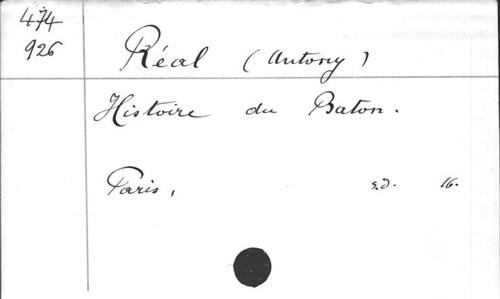 474
926
Réal (Antony)
Histoire du Baton.
Paris, s.d. 16.